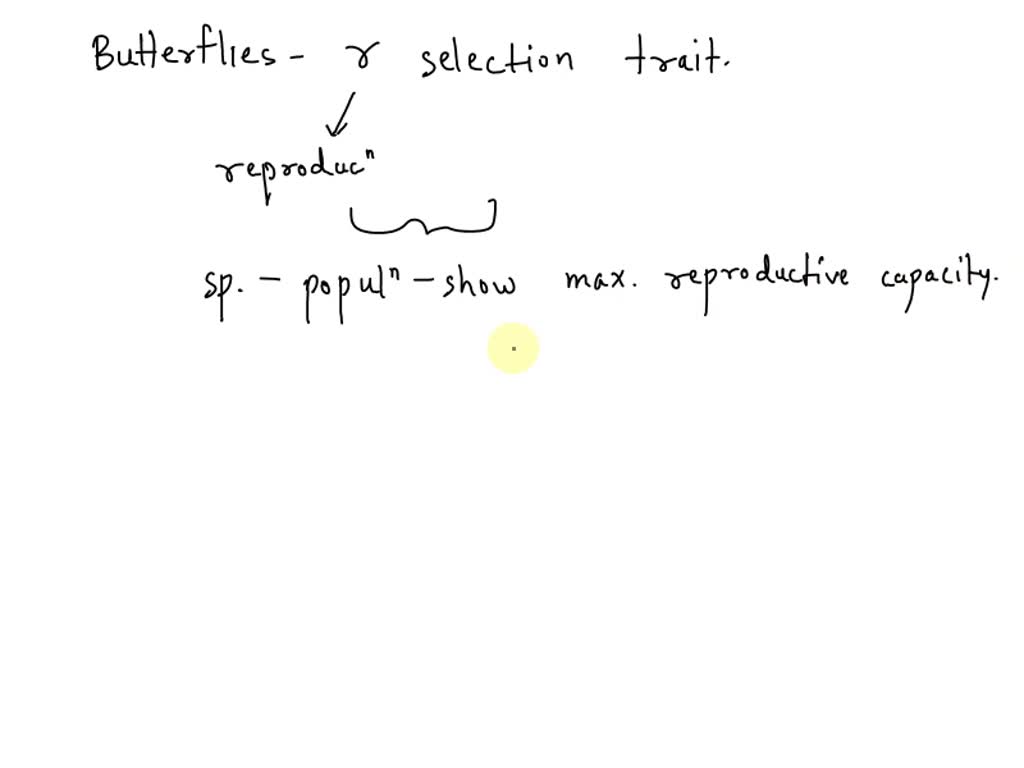 Butterflies - r selection trait.
reproducⁿ
sp. - populⁿ - show max. reproductive capacity.